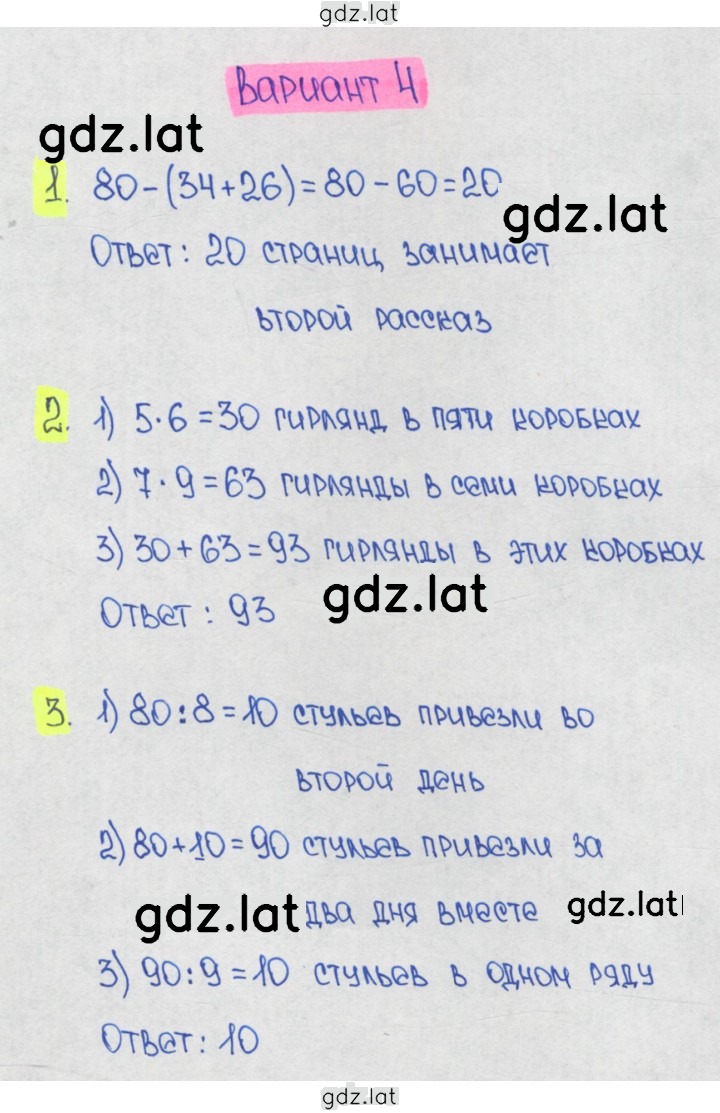 gdz.lat
Вариант 4
gdz.lat
1. 80-(34+26)=80-60=20
gdz.lat
Ответ: 20 страниц занимает
второй рассказ
2. 1) 5·6=30 гирлянд в пяти коробках
2) 7·9=63 гирлянды в семи коробках
3) 30+63=93 гирлянды в этих коробках
gdz.lat
Ответ: 93
3. 1) 80:8=10 стульев привезли во
второй день
2) 80+10=90 стульев привезли за
gdz.lat два дня вместе gdz.lat
3) 90:9=10 стульев в одном ряду
Ответ: 10
gdz.lat